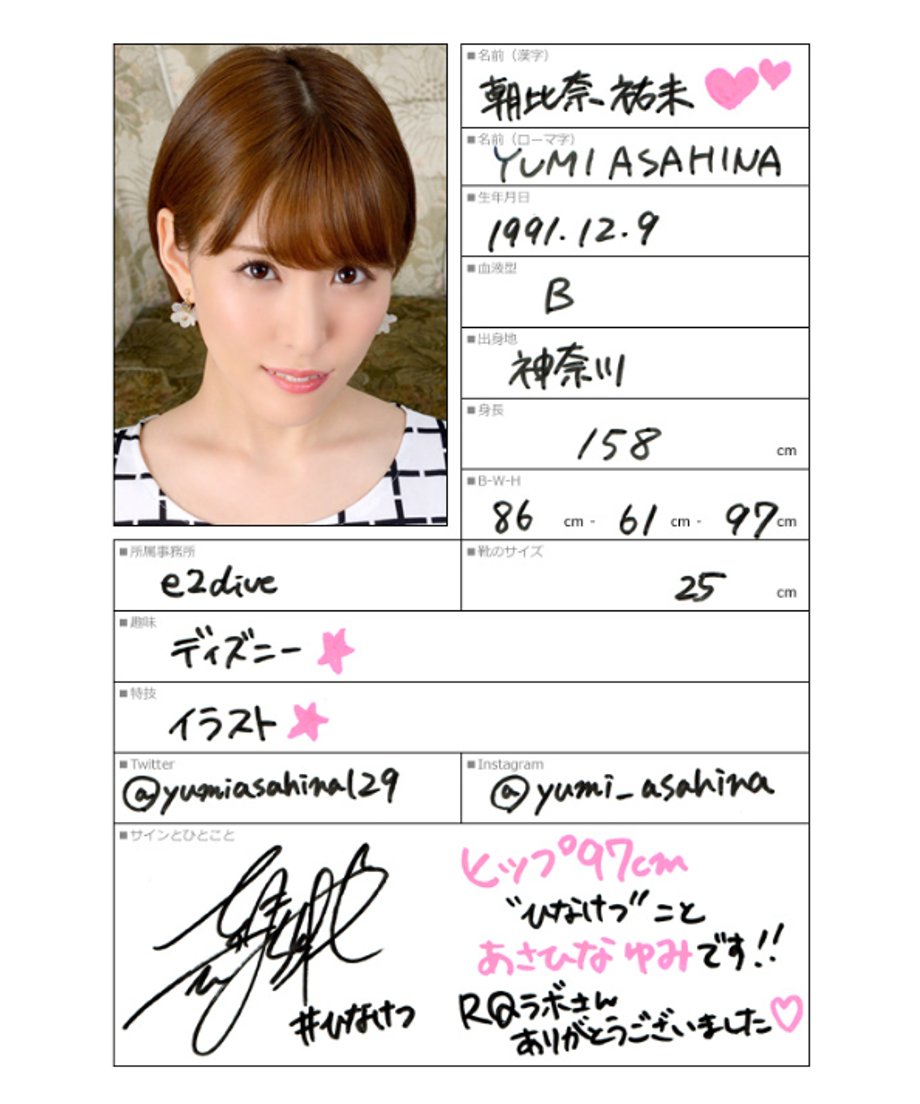 ■名前（漢字）
朝比奈祐未
■名前（ローマ字）
YUMI ASAHINA
■生年月日
1991.12.9
■血液型
B
■出身地
神奈川
■身長
158 cm
■B-W-H
86 cm - 61 cm - 97 cm
■所属事務所
e2dive
■靴のサイズ
25 cm
■趣味
ディズニー
■特技
イラスト
■Twitter
@yumiasahina129
■Instagram
@yumi_asahina
■サインとひとこと
#ひなけつ
ヒップ97cm
"ひなけつ"こと
あさひなゆみです!!
RQラボさん
ありがとうございました